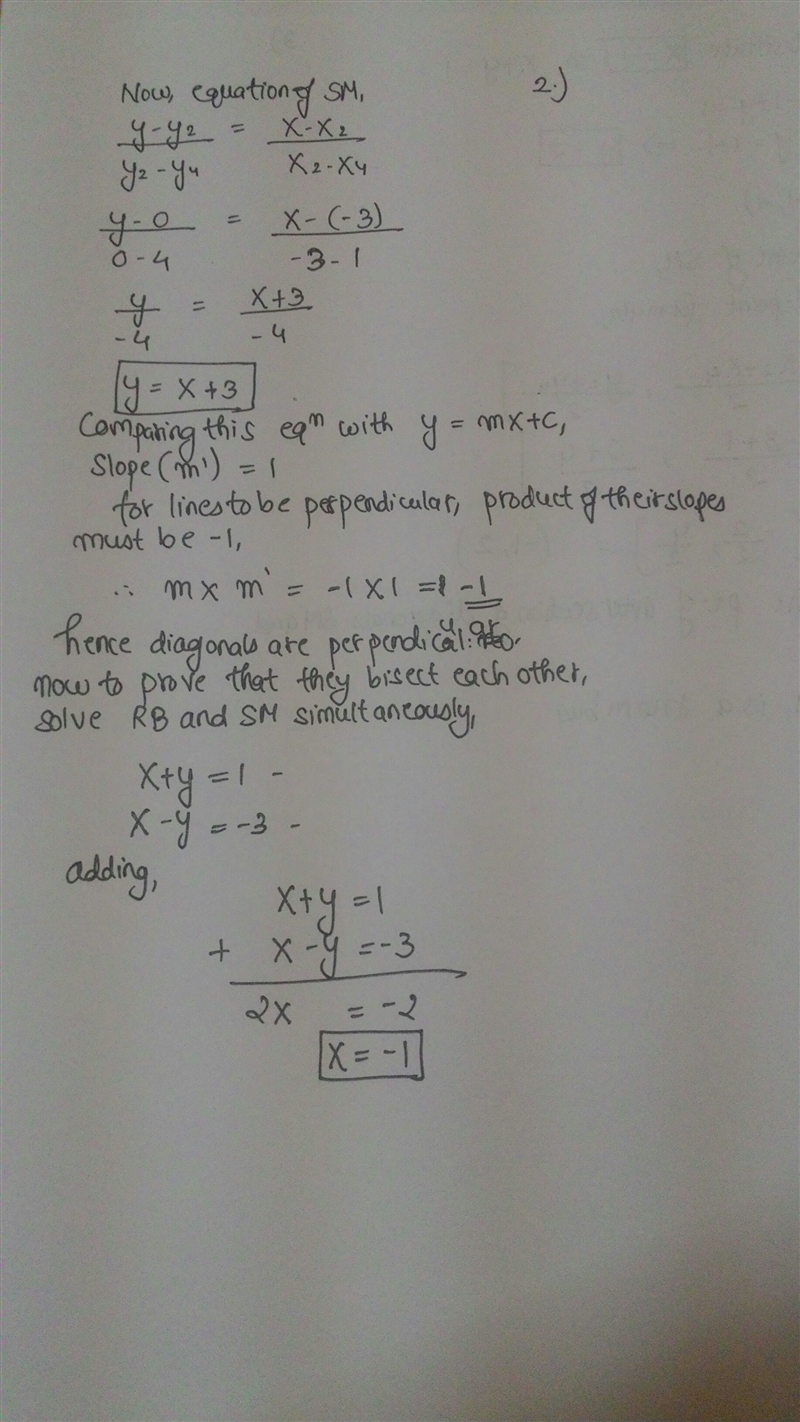 2.)
Now, equation of SM,
y-y2 / y2-y4 = x-x2 / x2-x4
y-0 / 0-4 = x-(-3) / -3-1
y / -4 = x+3 / -4
y = x+3
Comparing this eqn with y = mx+c,
Slope (m') = 1
for lines to be perpendicular, product of their slopes
must be -1,
∴ m x m' = -1 x 1 = -1
hence diagonals are perpendicular.
now to prove that they bisect each other,
solve RB and SM simultaneously,
x+y = 1 -
x-y = -3 -
adding,
x+y = 1
+ x-y = -3
2x = -2
x = -1